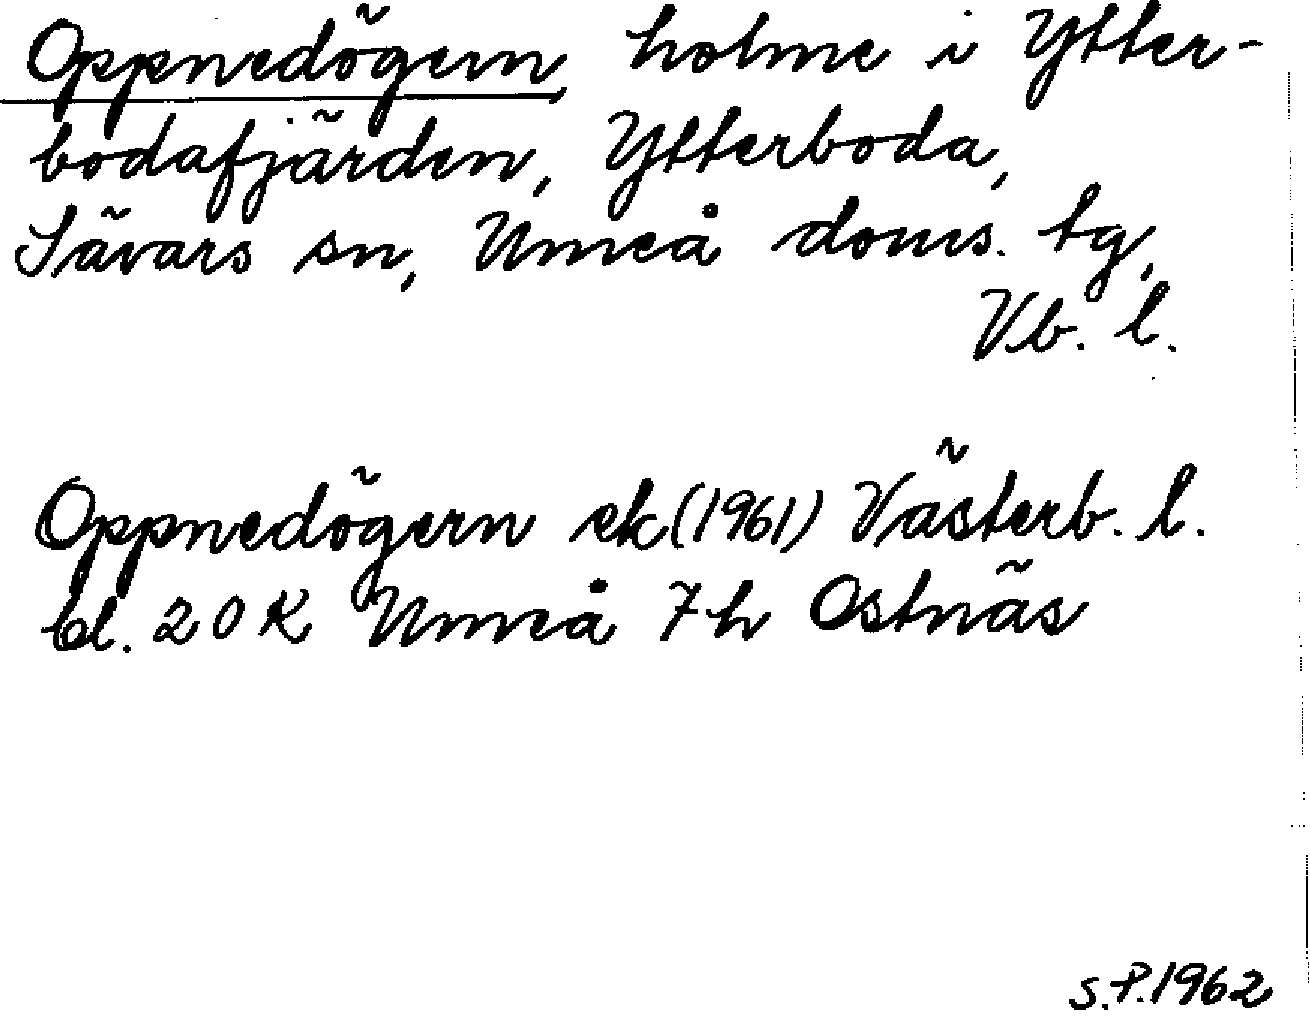 Oppnedögern holme i Ytter-
bodafjärden, Ytterboda,
Sävars sn, Umeå doms. tg,
Vb. l.
Oppnedögern ek (1961) Västerb. l.
bl. 20 K Umeå 7h Ostnäs
S.P. 1962